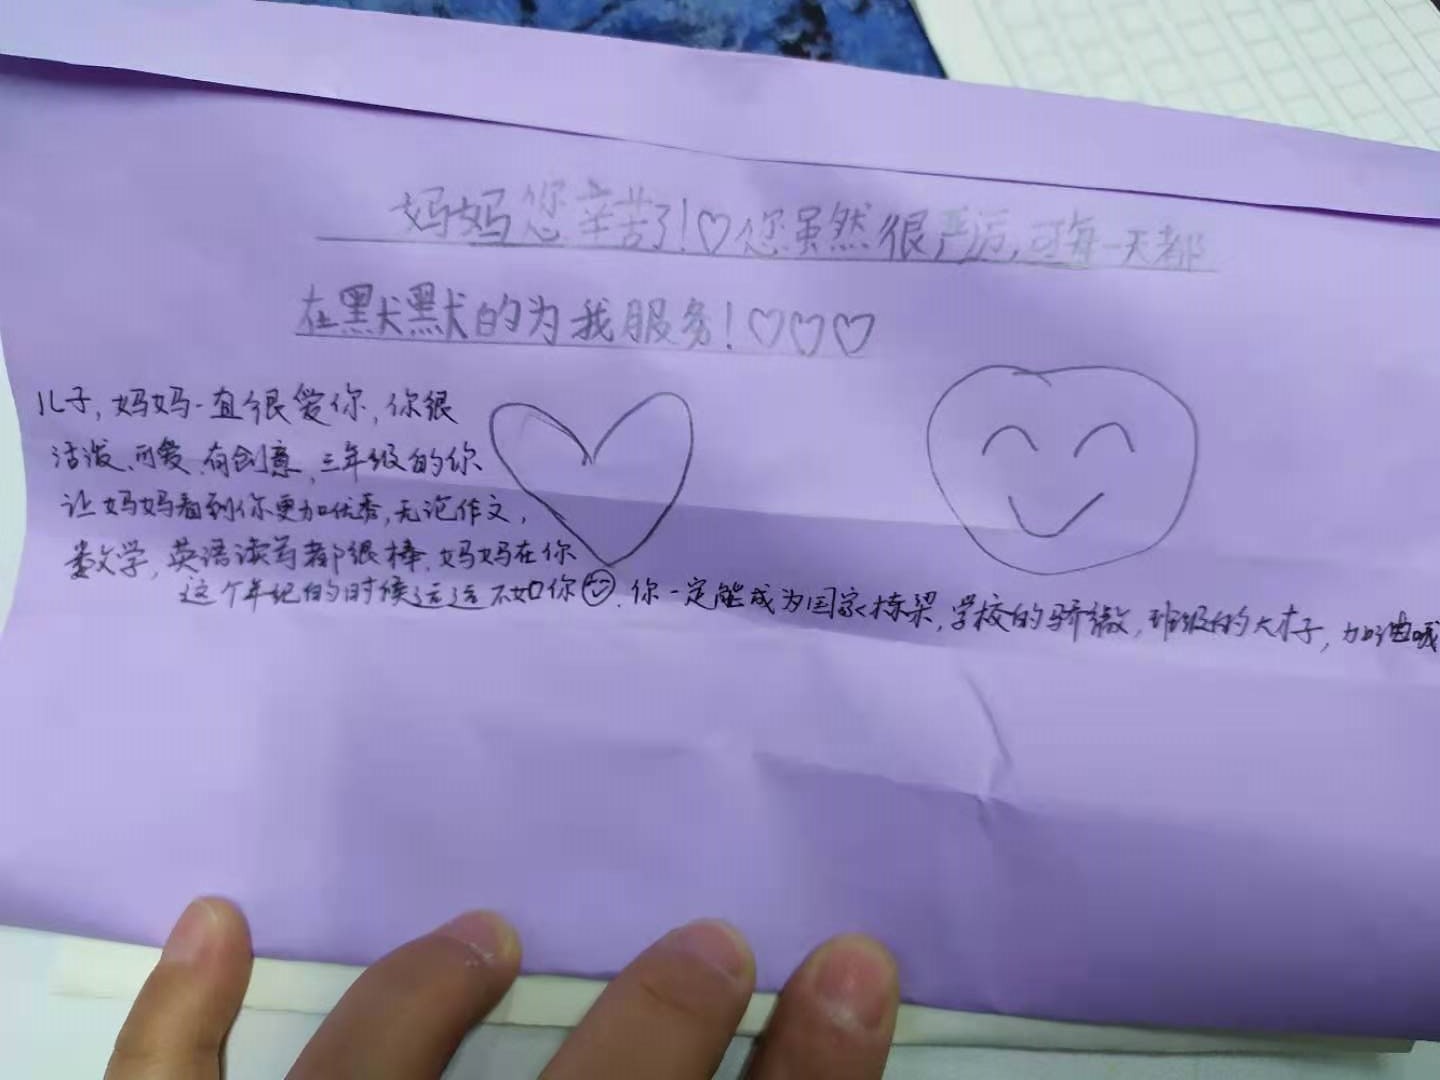 妈妈您辛苦了!♡您虽然很严厉,可每一天都
在默默的为我服务!♡♡♡
儿子,妈妈一直很爱你,你很
活泼、可爱、有创意,三年级的你
让妈妈看到你更加优秀,无论作文,
数学,英语读写都很棒.妈妈在你
这个年纪的时候远远不如你☺.你一定能成为国家栋梁,学校的骄傲,班级的大才子,加油哦